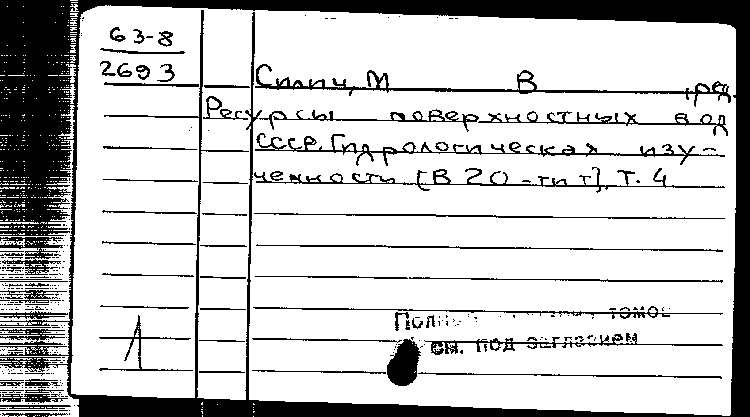 63-8
2693
Силич, М В ,ред.
Ресурсы поверхностных вод
СССР. Гидрологическая изу-
ченность [В 20-ти т]. Т. 4
1
Полно томов
см. под заглавием